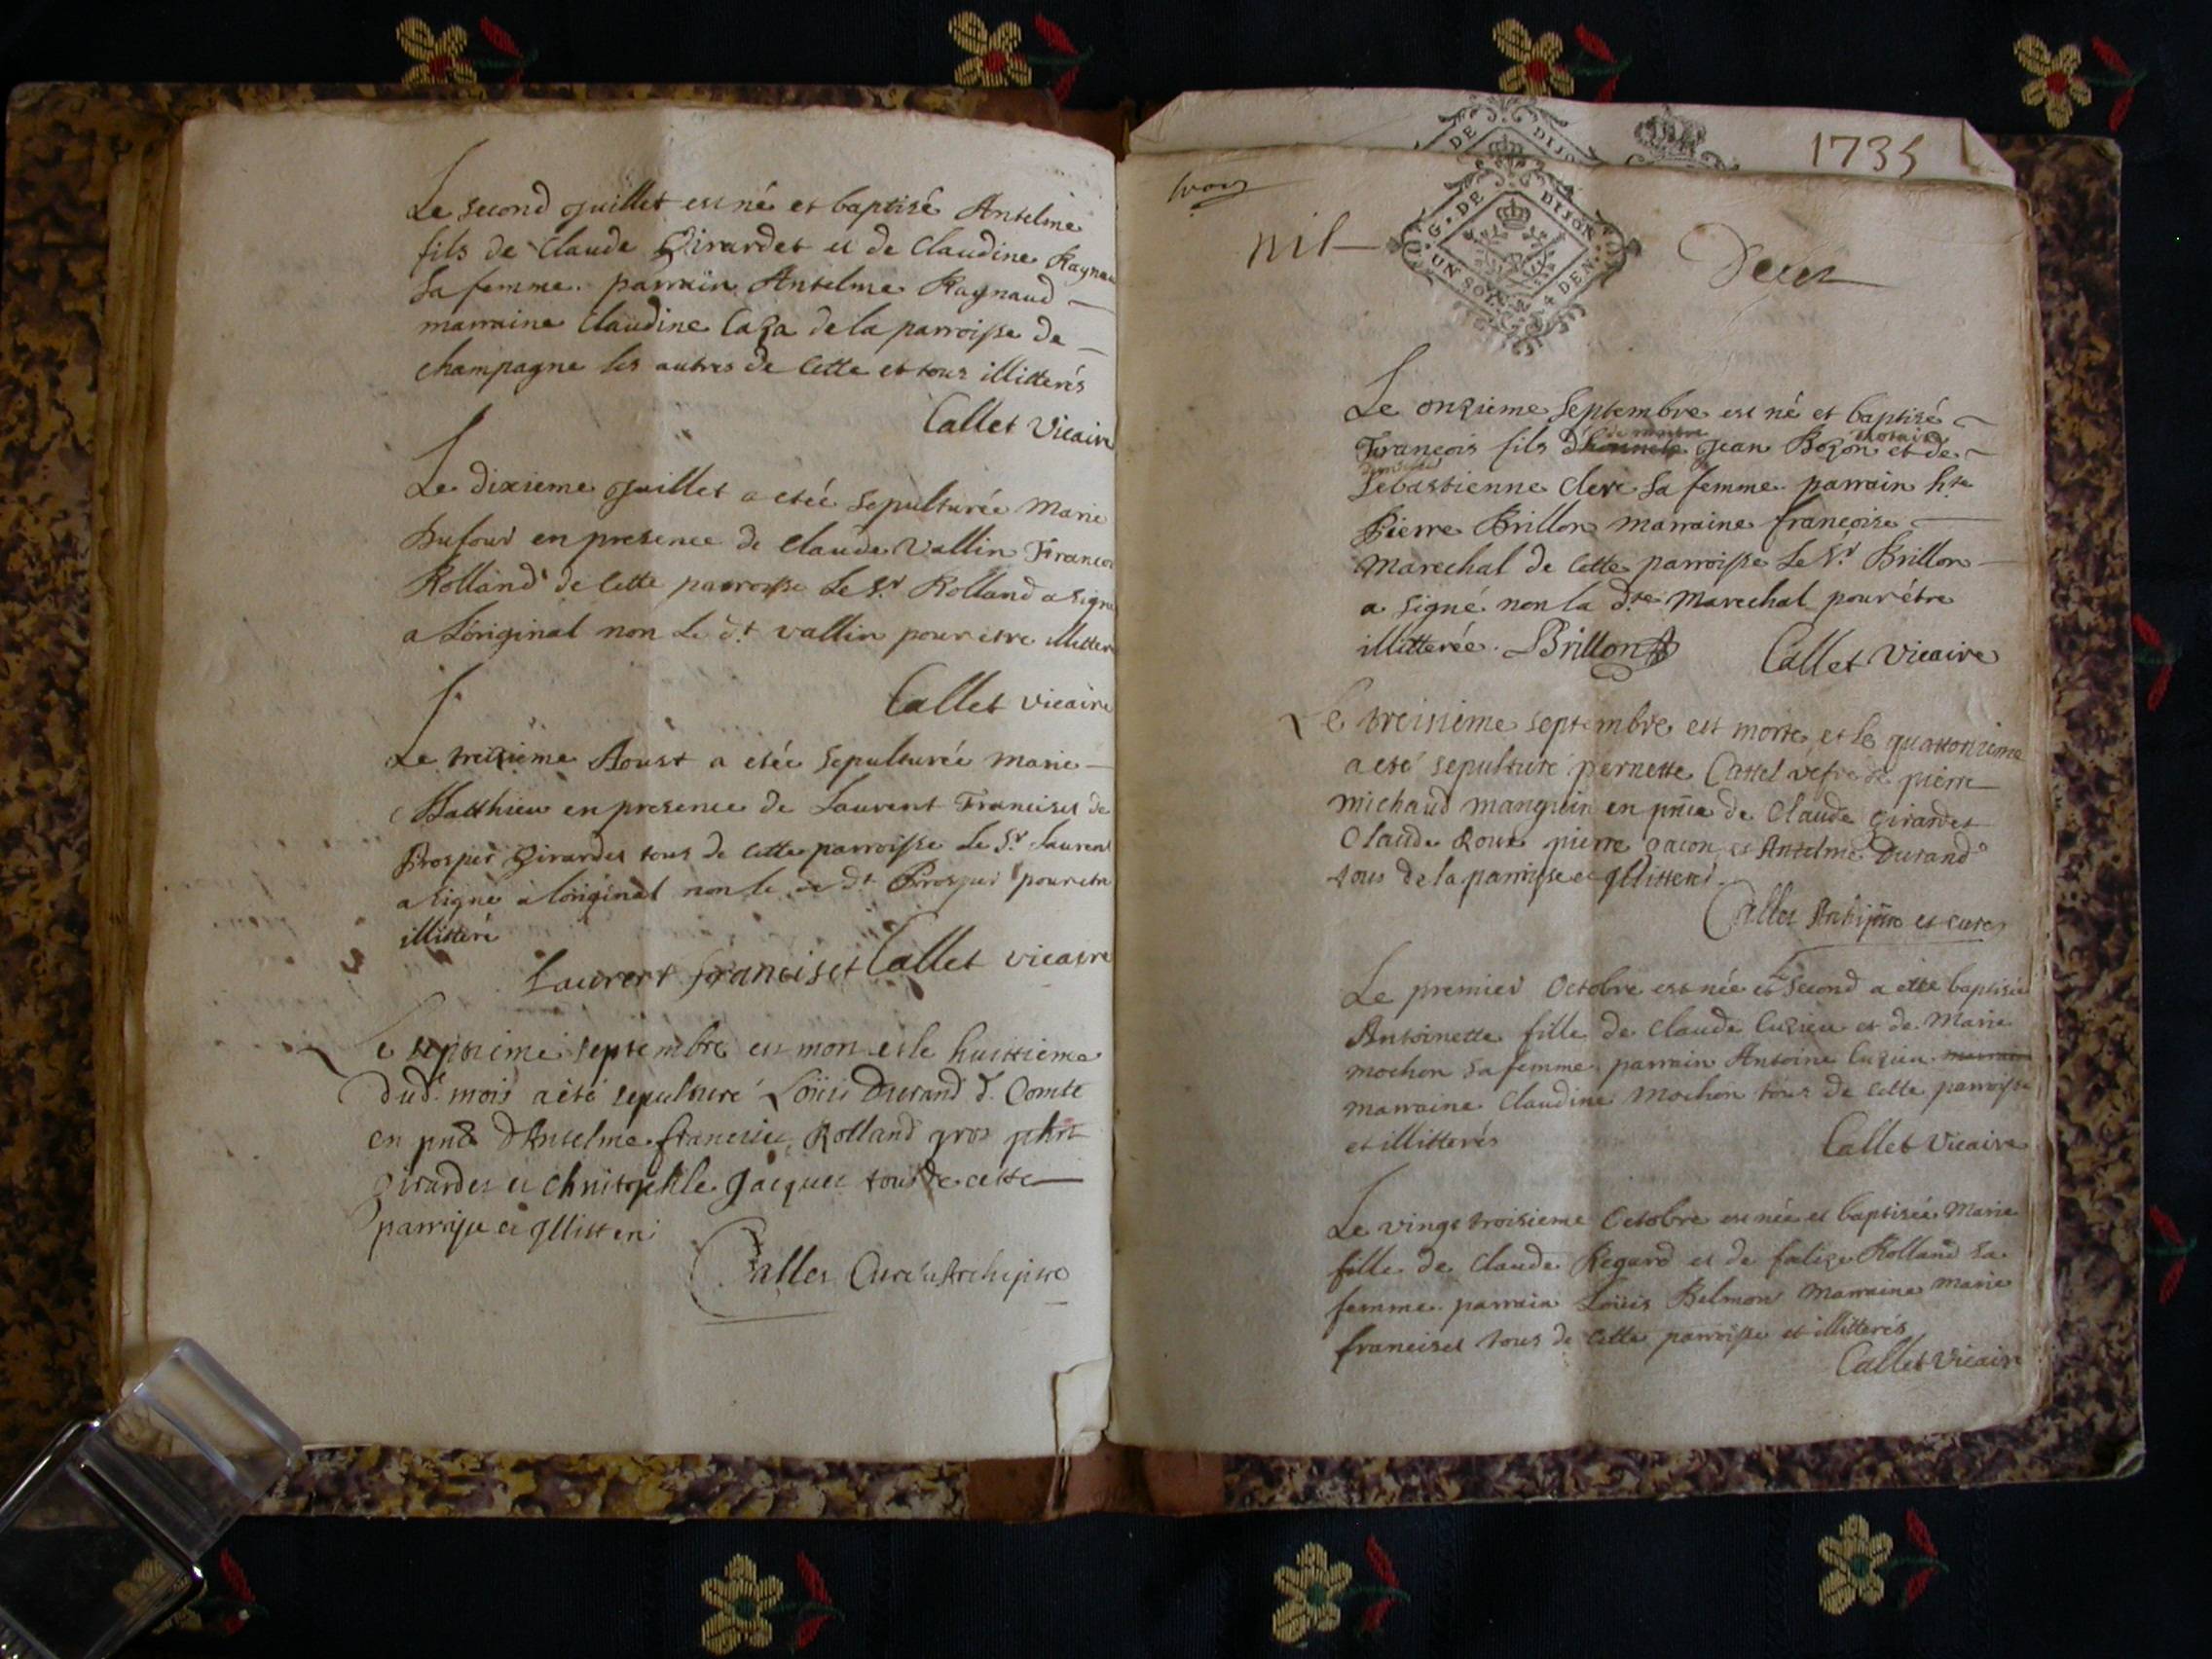 Le second Juillet est né et baptisé Antelme
fils de Claude Girardet et de Claudine Raynau
sa femme. parrain Antelme Raynaud
marraine Claudine Caza de la parroisse de
champagne les autres de cette et tous illitterés
Callet Vicaire
Le dixieme Juillet a etéé sepulturée Marie
Dufour en presence de Claude Vallin Francoi
Rolland de cette parroisse le Sr. Rolland a signé
a L'original non le dt. vallin pour etre illitter
Callet vicaire
Le treizieme Aoust a etéé sepulturée Marie
Matthieu en presence de Laurent Franciset de
Prosper Girardet tous de cette parroisse le Sr. Laurent
a signé a l'original non le dt Prosper pour etre
illitteré
Laurent franciset Callet vicaire
Le septieme septembre est mort et le huittieme
dud. mois a été sepulturé Loüis Durand d. Comte
en pnce d'Antelme franciset, Rolland gros phit
girardet et christophle Jacquet tous de cette
parroisse et Illitteré
Callet Curé et Archiptre
1735
G. DE DIJON
UN SOL 4 DEN.
nil
Le onzieme Septembre est né et baptisé
François fils de maitre Jean Bozon notaire et de
Sebastienne Clerc sa femme. parrain hte
Pierre Brillon marraine françoise
Marechal de cette parroisse Le Sr. Brillon
a signé non la dte. Marechal pour être
illitterée. Brillon Callet Vicaire
Le treisieme septembre est morte, et le quattorzieme
a eté sepulturé pernette Cattel vefve de pierre
michaud manguin en pnce de Claude girardet
Claude Roux pierre gacon, et Antelme Durand
tous de la parroisse et Illitteres.
Callet Archiptre et curé
Le premier Octobre est née et le second a etté baptisée
Antoinette fille de Claude Cuzieu et de Marie
mochon sa femme, parrain Antoine Cuzieu marraine
marraine Claudine Mochon tous de cette parroisse
et illitterés Callet Vicaire
Le vingt troisieme Octobre est née et baptisée Marie
fille de Claude Regard et de Rolland sa
femme. parrain Loüis Belmon Marraine Marie
franciset tous de cette parroisse et illitterés
Callet Vicaire